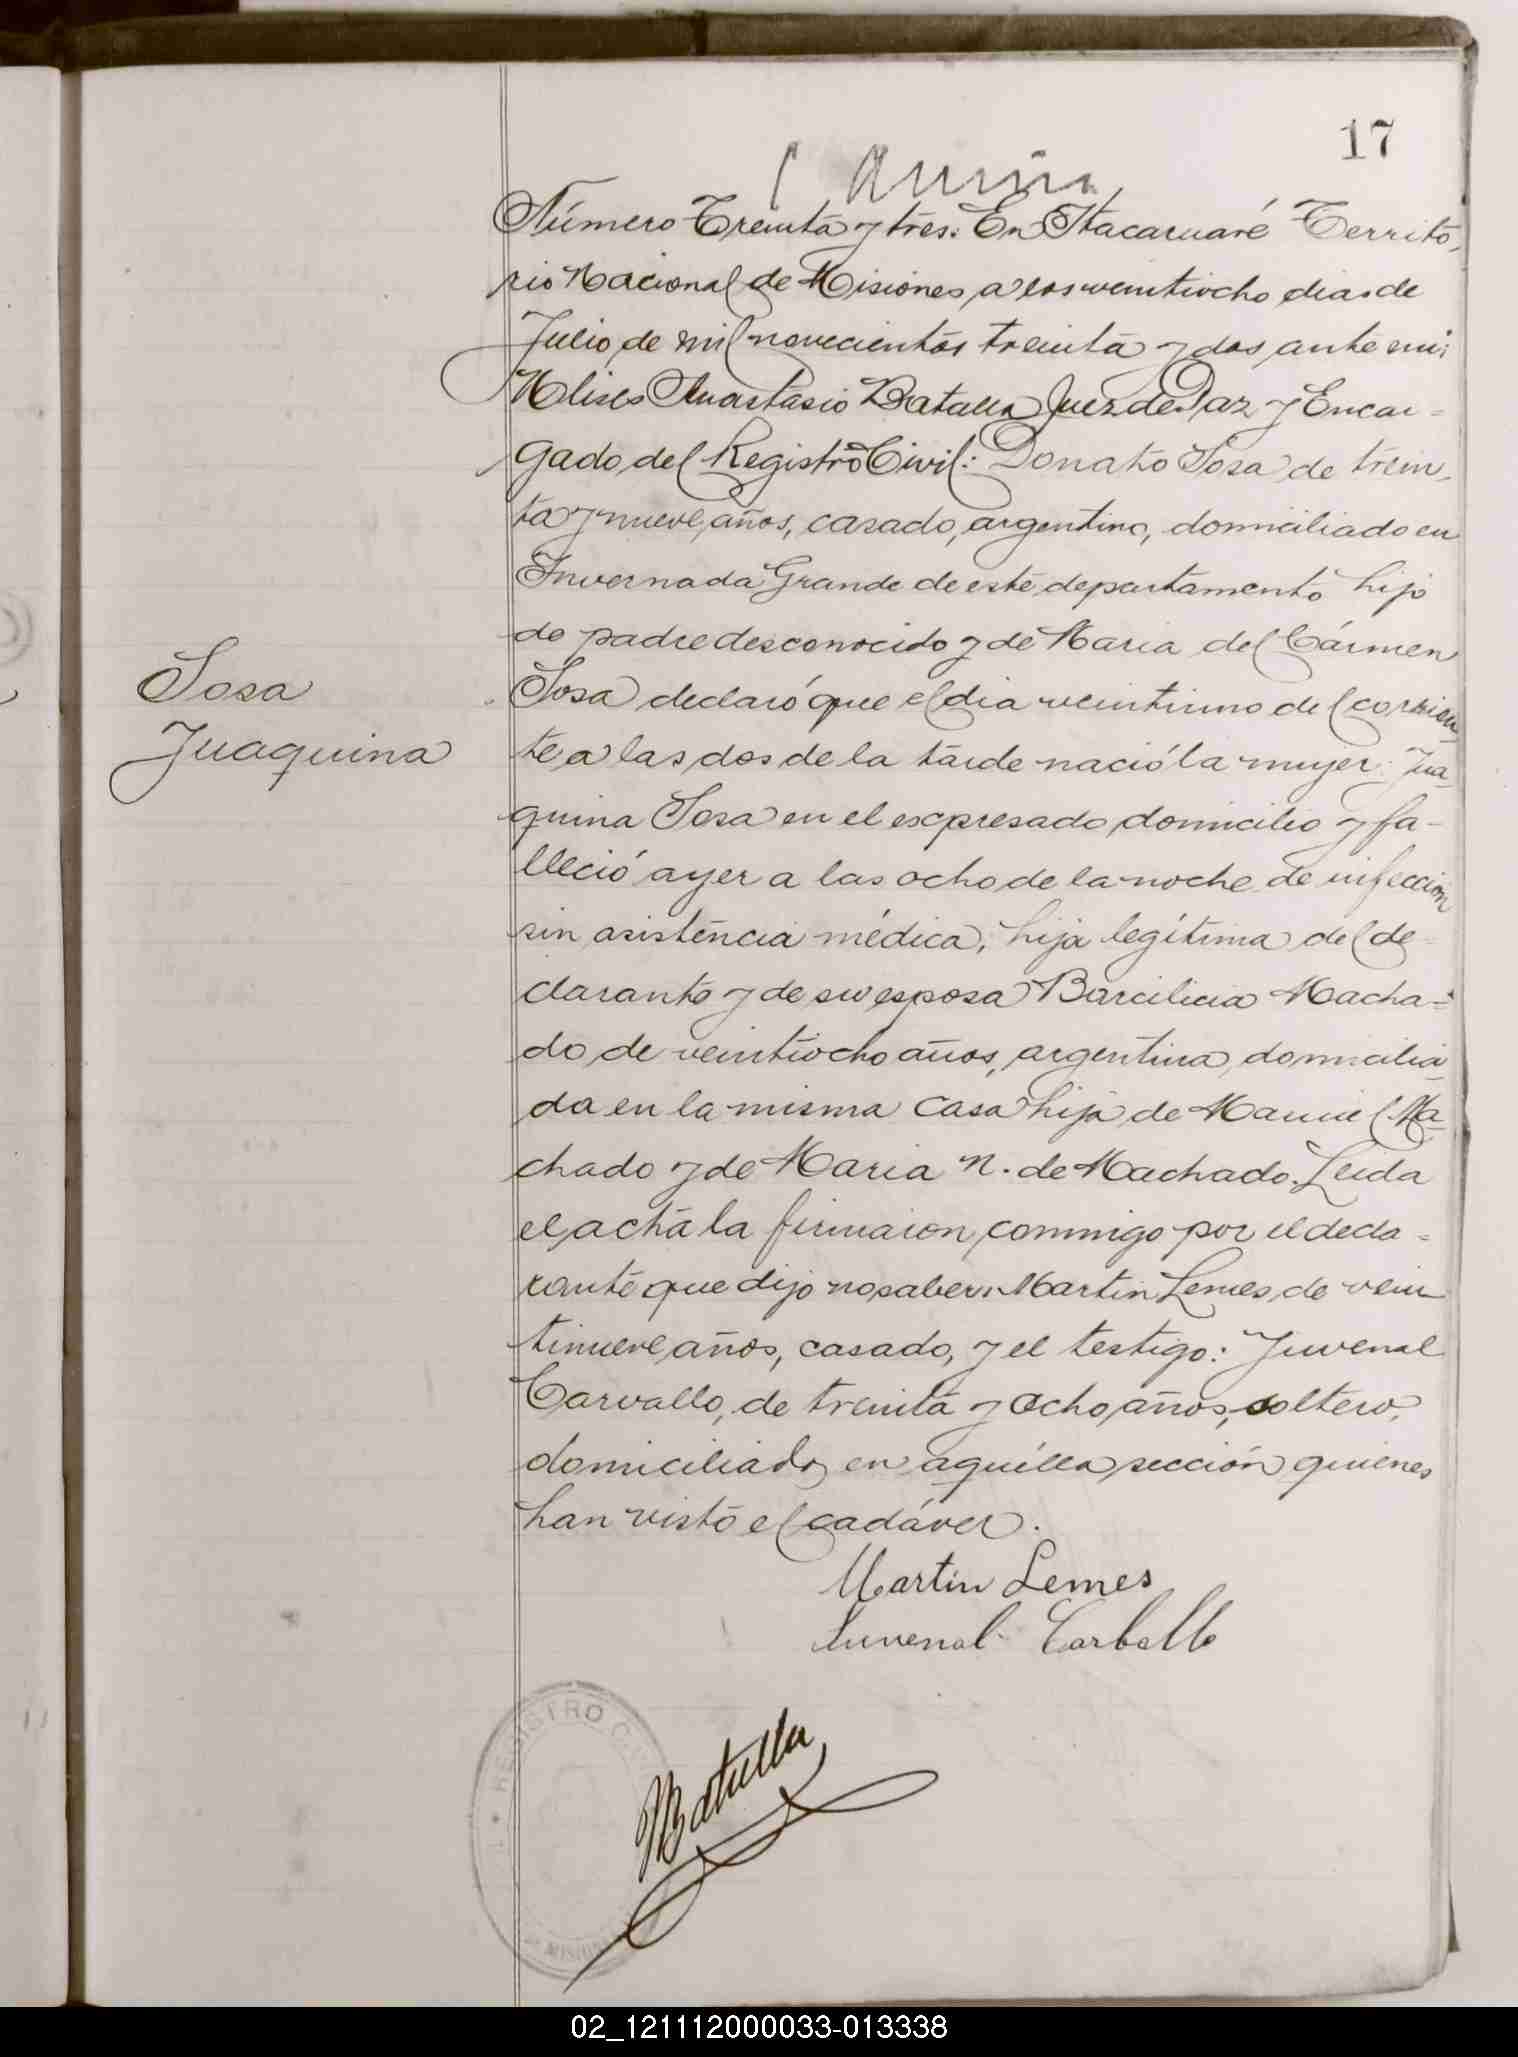 17
Número Treinta y tres. En Itacaruaré Territo-
rio Nacional de Misiones a los veintiocho dias de
Julio de mil novecientos treinta y dos ante mi:
Ulises Anastasio Batalla Juez de Paz y Encar-
gado del Registro Civil: Donato Sosa de trein-
ta y nueve años, casado, argentino, domiciliado en
Invernada Grande de este departamento hijo
de padre desconocido y de Maria del Cármen
Sosa declaró que el dia veintiuno del corrien-
te a las dos de la tarde nació la mujer: Jua-
quina Sosa en el expresado domicilio y fa-
lleció ayer a las ocho de la noche de infección
sin asistencia médica, hija legítima del de-
clarante y de su esposa Barcilicia Macha-
do de veintiocho años, argentina, domicilia-
da en la misma casa hija de Manuel Ma-
chado y de Maria N. de Machado. Leida
el acta la firmaron conmigo por el decla-
rante que dijo no saber: Martin Lemes, de vein
tinueve años, casado, y el testigo: Juvenal
Carvallo, de treinta y ocho años, soltero,
domiciliados en aquélla sección quienes
han visto el cadáver.
Sosa
Juaquina
Martin Lemes
Juvenal Carballo
Batalla
REGISTRO
MISIONES
02_121112000033-013338